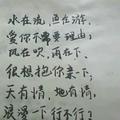 水在流,鱼在游,
爱你不需要理由;
风在吹,雨在下,
很想抱你亲一下,
天有情,地有情,
浪漫一下行不行?